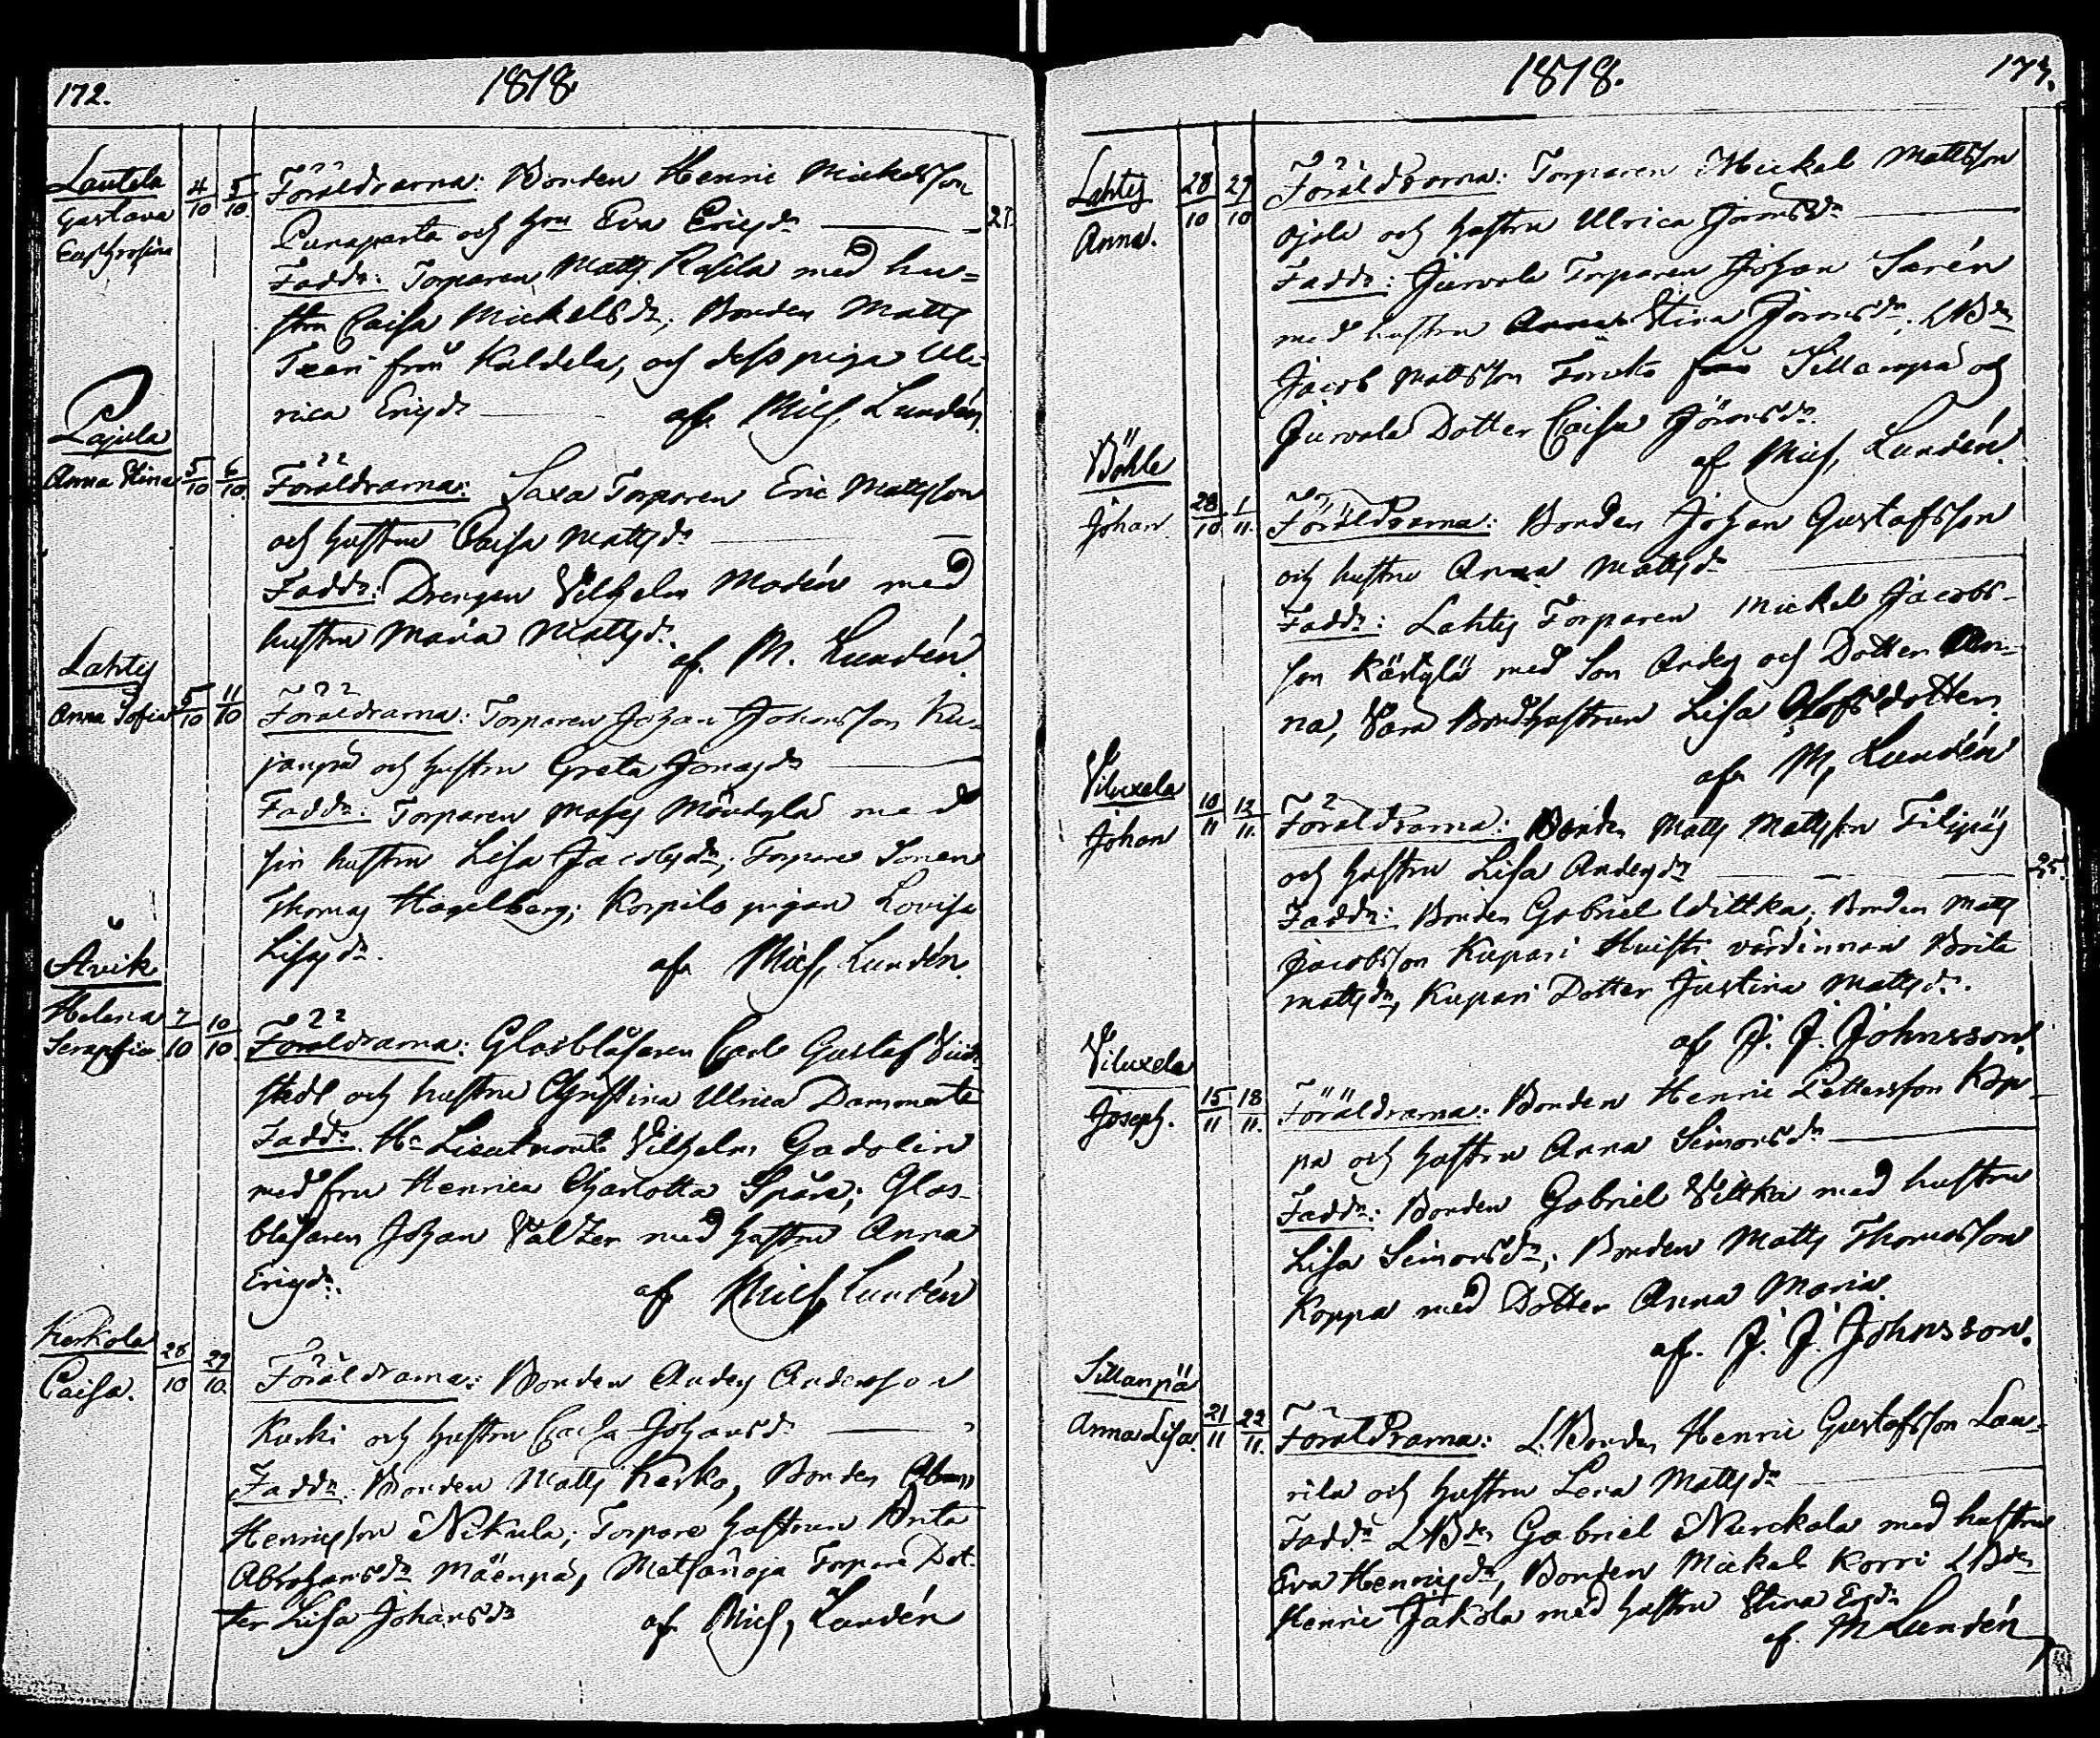 172.
1818.
Lautela
Gustava
4/10 5/10
Föräldrarna: Bonden Henric Mickelsson
och hru Eva Ericsdr
21.
Faddr: Torparen Matts Rasila med hu=
stru Caisa Mickelsdr; Bonden Matts
från Kaldela, och dess piga Ul-
rica Ericsdr
af Mich, Lundén.
Pajula
Anna Stina
5/10 6/10
Föräldrarna: Saxa Torparen Eric Mattsson
och hustru Caisa Mattsdr
Faddr: Drengen Vilhelm Modén med
hustru Maria Mattsdr.
af. M. Lundén.
Lahtis
Anna Sofia
5/10 11/10
Föräldrarna: Torparen Johan Johansson Ku-
janpä och hustru Greta Jonasdr
Faddr: Torparen med
sin hustru Lisa Jacobsdr; Torpare Sonen
Thomas Hagelberg; Korpilo pigan Lovisa
Lisasdr.
af Mich, Lundén.
Åvik
Helena
Seraphia
7/10 10/10
Föräldrarna: Glasblåsaren Carl Gustaf
stedt och hustru Christina Ulrica Dammerte
Faddr. Hr Lieutnant Vilhelm Gadolin
med fru Henrica Charlotta Spåre; Glas-
blåsaren Johan Valzer med hustru Anna
Ericsdr.
af Mich, Lundén
Kerkola
Caisa.
28/10 29/10
Föräldrarna: Bonden Anders Andersson
Kurki och hustru Caisa Johansdr
Faddr. Bonden Matts Kerko, Bonden Abram
Henricsson Nikula; Torpare hustrun Anta
Abrahamsdr Mäenpä, Metsänoja Torpare Dot-
ter Lisa Johansdr
af Mich, Lundén
1818.
173.
Lahtis
Anna.
28/10 29/10
Föräldrarna: Torparen Mickel Mattsson
Ojala och hustru Ulrica Göransdr
Faddr: Jurvala Torparen Johan Sarén
med hustru Anna Stina Göransdr; LBdn
Jacob Mattsson från Sillanpä och
Jurvala Dotter Caisa Jöransdr.
af Mich, Lundén.
Böhle
Johan
28/10 1/11.
Föräldrarna: Bonden Johan Gustafsson
och hustru Anna Mattsdr
Faddr: Lahtis Torparen Mickel Jacobs-
son Kärkylä med Son Anders och Dotter An-
na, Bondhustrun Lisa Olofsdotter.
af M, Lundén
Viluxela
Johan
10/11 12/11.
Föräldrarna: Bonden Matts Mattsson Filpus
och hustru Lisa Andersdr
25.
Faddr: Bonden Gabriel Wittka; Bonden Matts
Jacobsson Kupari Huisti värdinnan Brita
Mattsdr, Kupari Dotter Justina Mattsdr.
af J. J. Johnsson.
Viluxela
Joseph.
15/11 18/11.
Föräldrarna: Bonden Henric Pettersson Kop-
pa och hustru Anna Simonsdr
Faddr: Bonden Gabriel Vittka med hustru
Lisa Simonsdr; Bonden Matts Thomasson
Koppa med Dotter Anna Maria.
af. J. J. Johnsson.
Sillanpä
Anna Lisa.
21/11 22/11.
Föräldrarna: L.Bonden Henric Gustafsson Lau-
rila och hustru Lena Mattsdr
Faddr LBdn Gabriel Nurckala med hustru
Eva Henricsdr, Bonden Mickel Korri LBdn
Henric Jakola med hustru Stina Ersdr
af. M Lundén